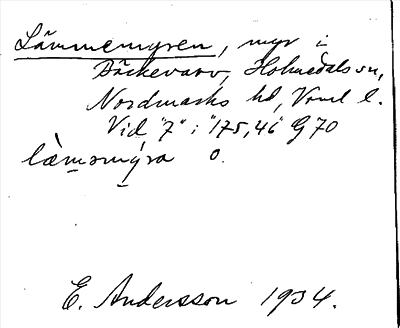 Lämmemyren, myr i
Bäckevarv, Holmedals sn,
Nordmarks hd, Vrml l.
Vid "7" i "175,46" G 70
læ̀mǝmýra o.
E. Andersson 1934.